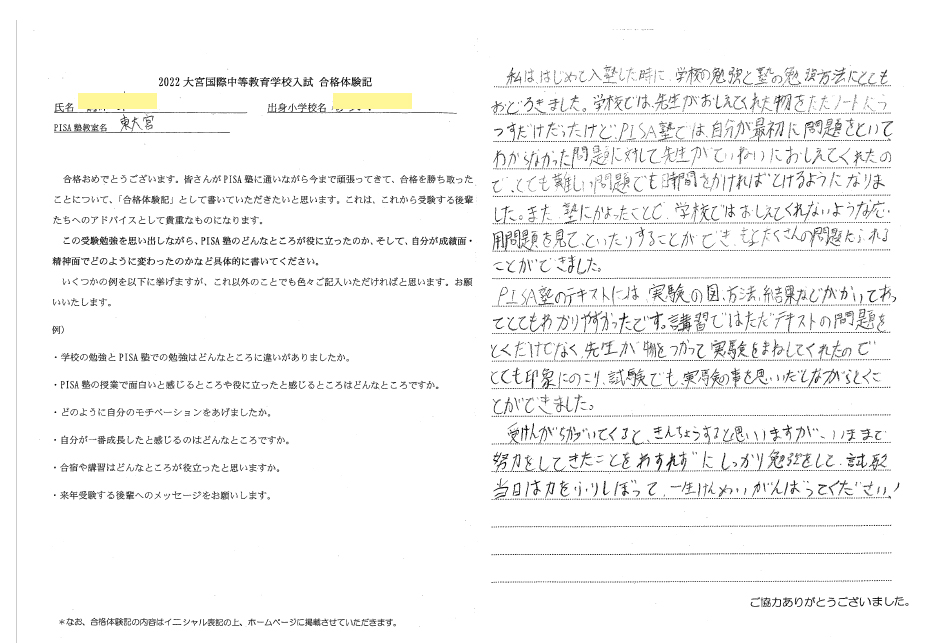 2022 大宮国際中等教育学校入試 合格体験記
氏名
出身小学校名:
PISA 塾教室名 東大宮
合格おめでとうございます。皆さんが PISA 塾に通いながら今まで頑張ってきて、合格を勝ち取った
ことについて、「合格体験記」として書いていただきたいと思います。これは、これから受験する後輩
たちへのアドバイスとして貴重なものになります。
この受験勉強を思い出しながら、PISA 塾のどんなところが役に立ったのか、そして、自分が成績面・
精神面でどのように変わったのかなど具体的に書いてください。
いくつかの例を以下に挙げますが、これ以外のことでも色々ご記入いただければと思います。お願
いいたします。
例）
・学校の勉強と PISA 塾での勉強はどんなところに違いがありましたか。
・PISA 塾の授業で面白いと感じるところや役に立ったと感じるところはどんなところですか。
・どのように自分のモチベーションをあげましたか。
・自分が一番成長したと感じるのはどんなところですか。
・合宿や講習はどんなところが役立ったと思いますか。
・来年受験する後輩へのメッセージをお願いします。
＊なお、合格体験記の内容はイニシャル表記の上、ホームページに掲載させていただきます。
私ははじめて入塾した時に、学校の勉強と塾の勉強方法にとても
おどろきました。学校では、先生がおしえてくれた物をただノートにう
つすだけだったけど、PISA塾では、自分が最初に問題をといて
わからなかった問題に対して先生がていねいにおしえてくれたの
で、とても難しい問題でも時間をかければとけるようになりま
した。また、塾にかよったことで、学校ではおしえてくれないような応
用問題を見て、といたりすることができ、もっとたくさんの問題にふれる
ことができました。
PISA塾のテキストには、実験の図、方法、結果などがかいてあっ
てとてもわかりやすかったです。講習ではただテキストの問題を
とくだけでなく、先生が物をつかって実験をまねしてくれたので
とても印象にのこり、試験でも、実験の事を思いだしながらとくこ
とができました。
受けんがちかづいてくると、きんちょうすると思いますが、いままで
努力をしてきたことをわすれずにしっかり勉強をして、試験
当日は力をふりしぼって、一生けんめいがんばってください!
ご協力ありがとうございました。